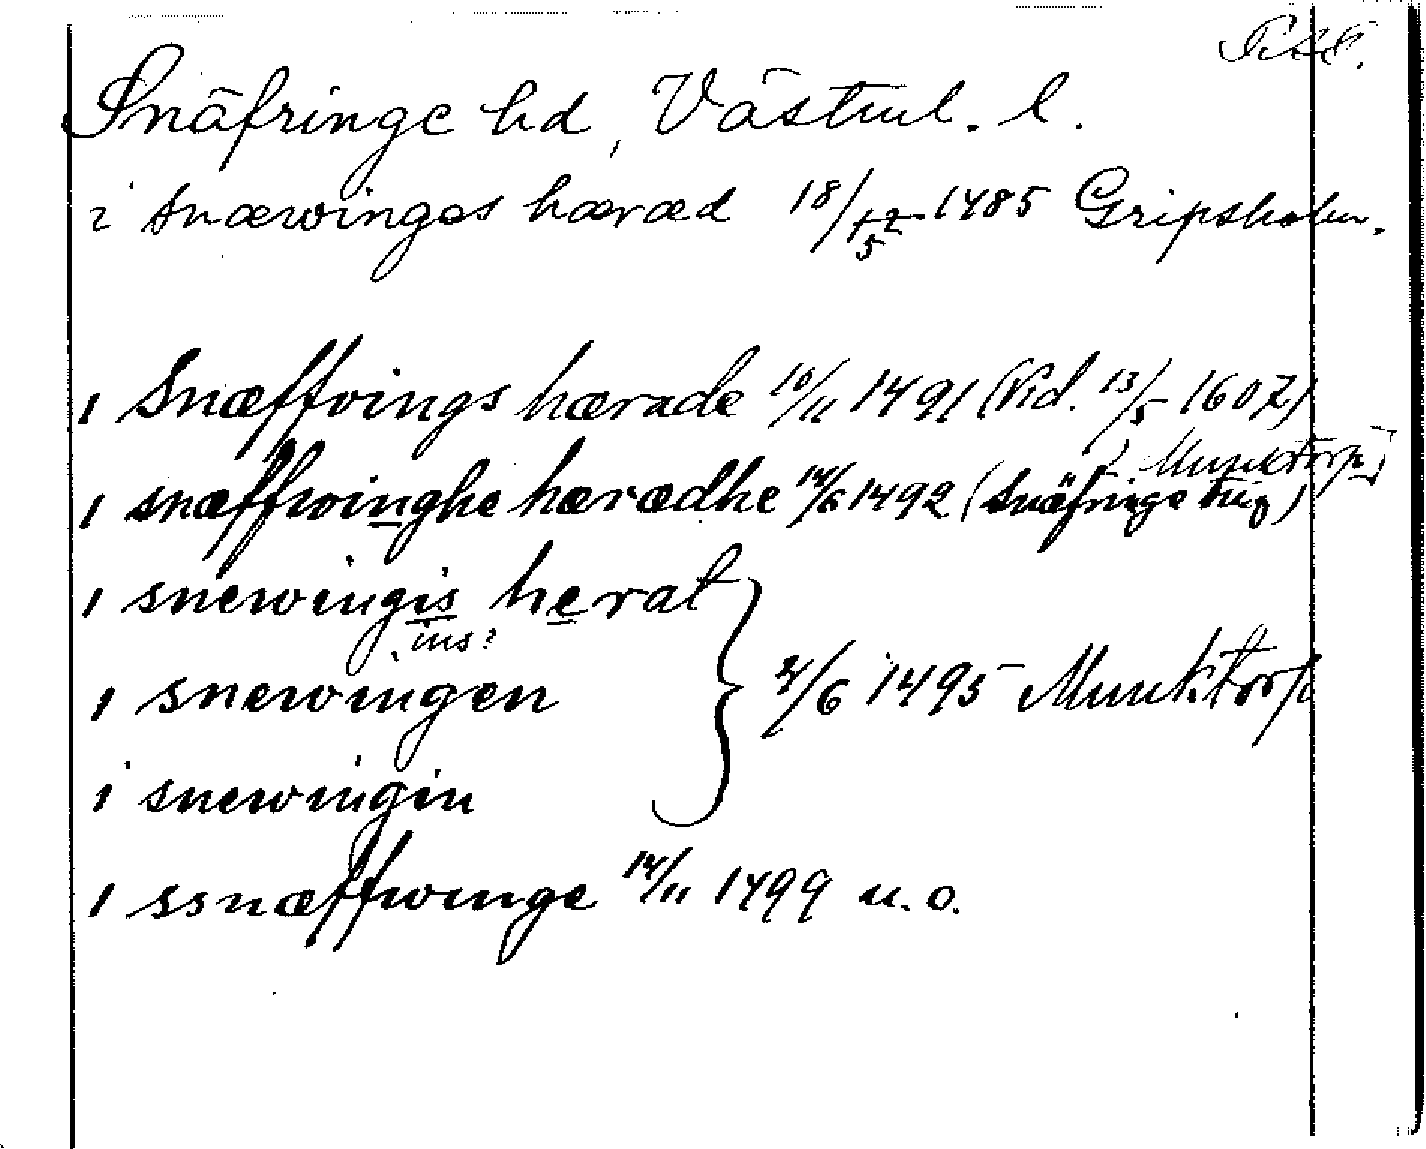 Snäfringe hd, Västml. l.
i snæwinges hæræd 18/5 1485 Gripsholm.
i Snæffrings hærade 10/11 1491 (Vid. 13/5 1607)
i snæffwinghe hærædhe 14/6 1492 (Snäfringe ting) [i Munktorp]
i snewingis herat
ins?
i snewingen 2/6 1495 Munktorp
i snewingin
i ssnæffwinge 14/11 1499 u.o.